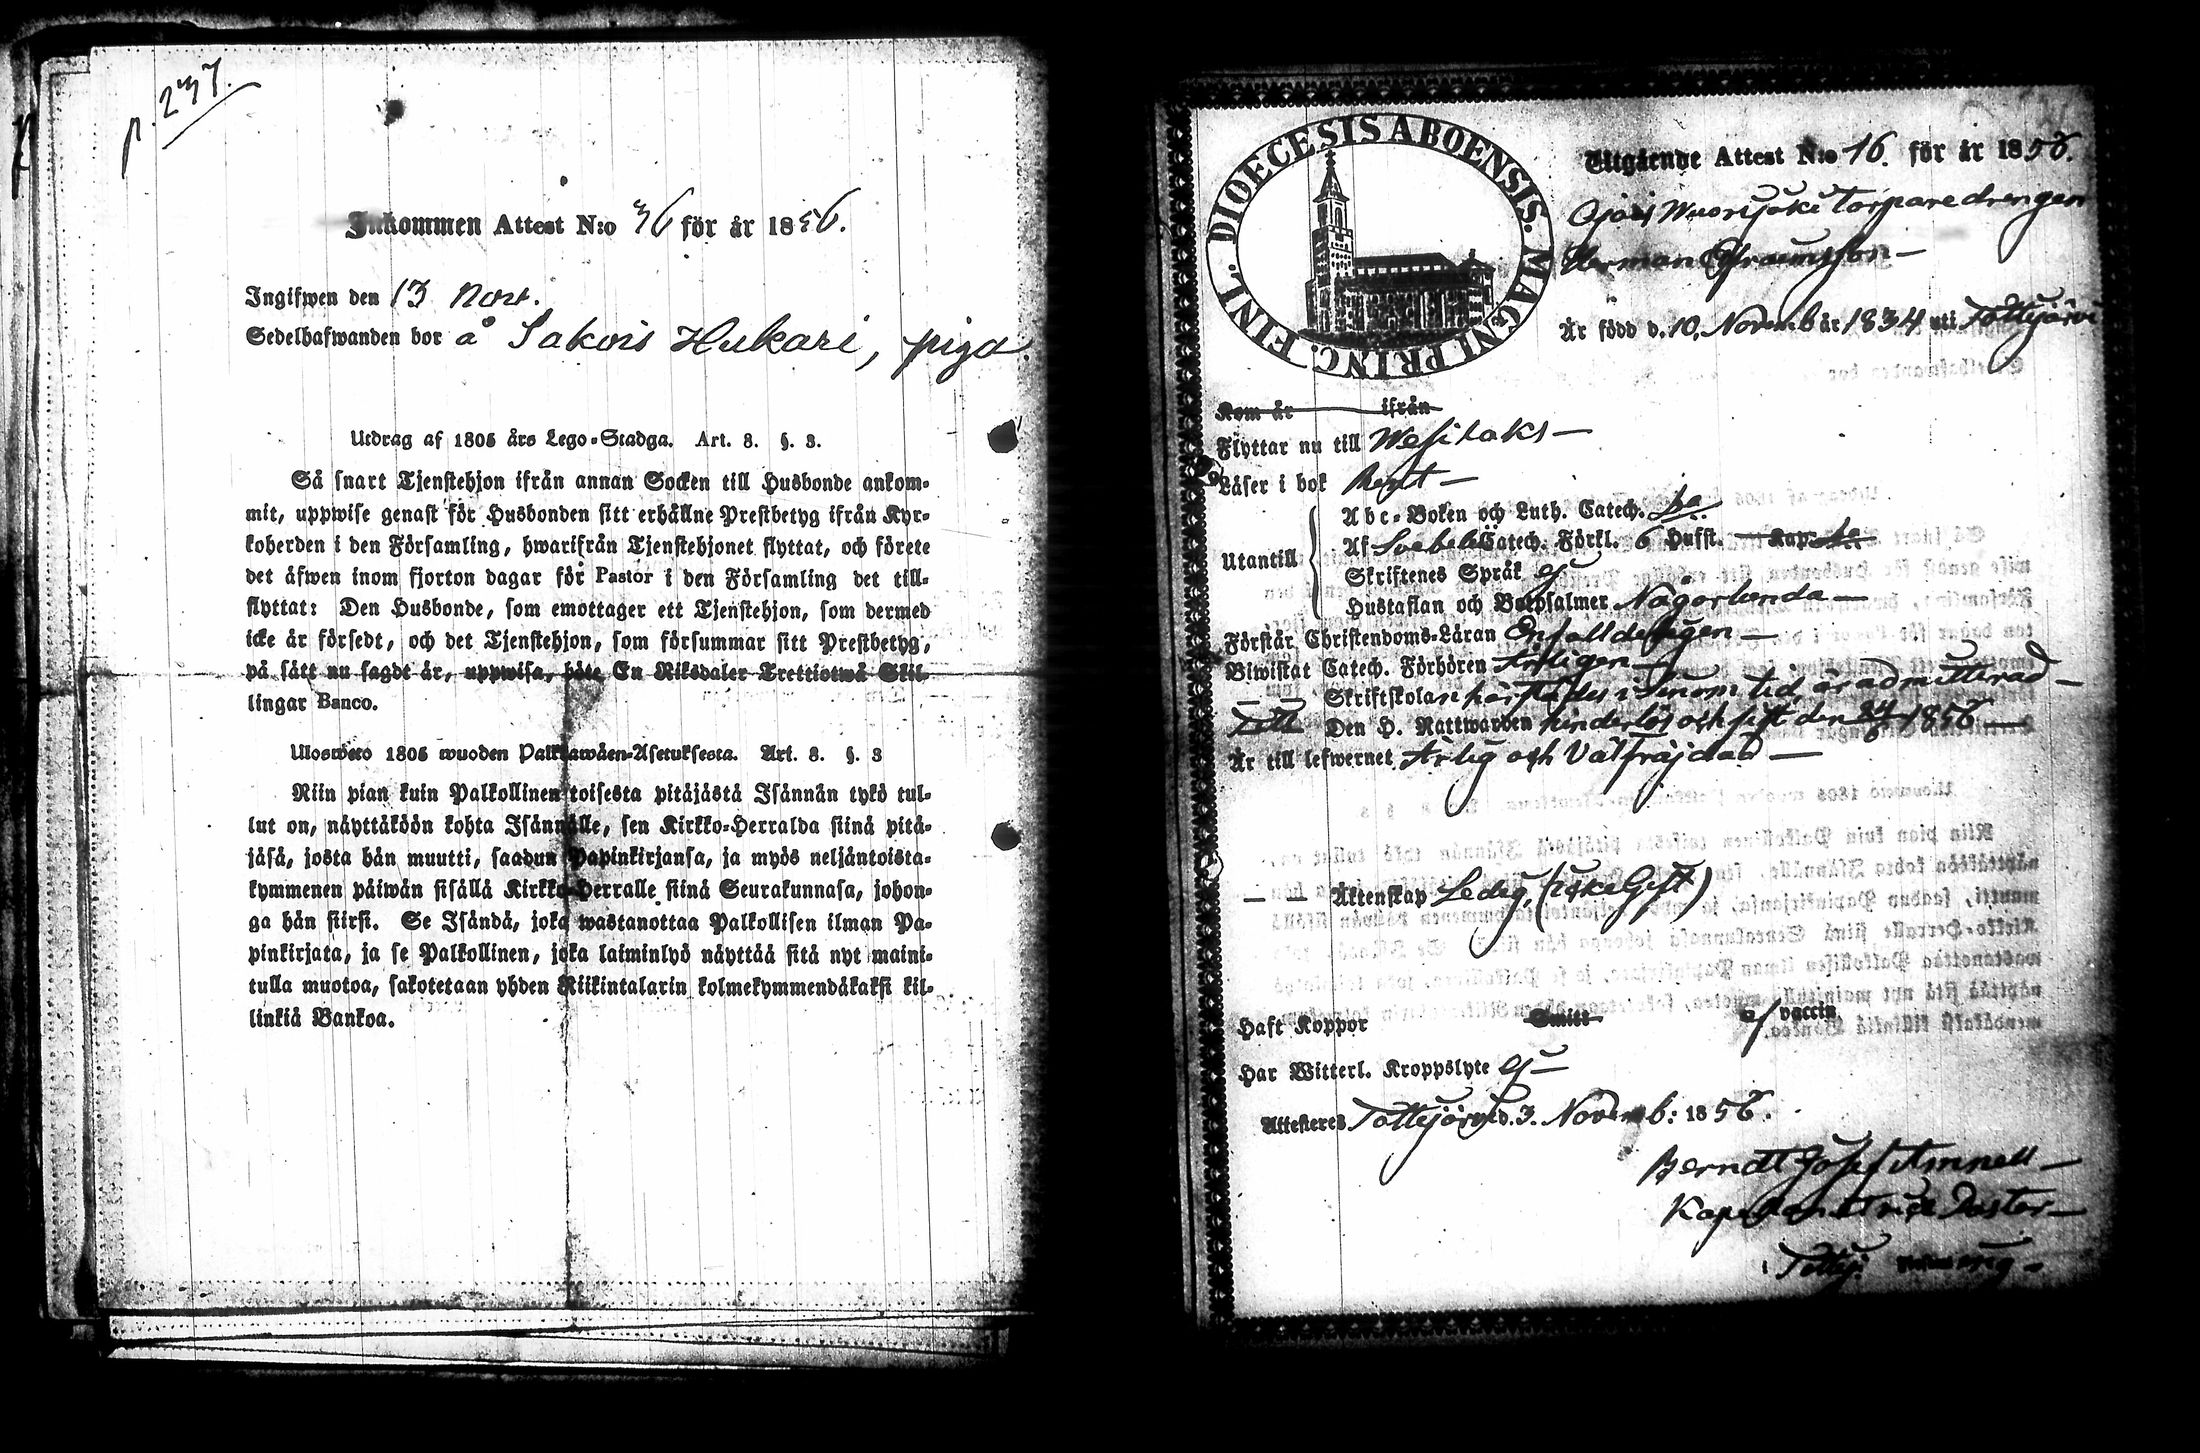 p. 237.
Inkommen Attest N:o 36 för år 1856.
Ingifwen den 13 Nov.
Sedelhafwanden bor å Sakois Hukari, piga.
Utdrag af 1805 års Lego-Stadga. Art. 8. §. 3.
Så snart Tjenstehjon ifrån annan Socken till Husbonde ankom-
mit, uppwise genast för Husbonden sitt erhållne Prestbetyg ifrån Kyr-
koherden i den Församling, hwarifrån Tjenstehjonet flyttat, och förete
det äfwen inom fjorton dagar för Pastor i den Församling det till-
flyttat: Den Husbonde, som emottager ett Tjenstehjon, som dermed
icke är försedt, och det Tjenstehjon, som försummar sitt Prestbetyg,
på sätt nu sagdt är, uppwisa, böte En Riksdaler Trettiotwå Skil-
lingar Banco.
Ulosweto 1805 wuoden Palkkawäen-Asetuksesta. Art. 8. §. 3
Niin pian kuin Palkollinen toisesta pitäjästä Isännän tykö tul-
lut on, näyttäköön kohta Isännälle, sen Kirkko-Herralda siinä pitä-
jäsä, josta hän muutti, saadun Papinkirjansa, ja myös neljäntoista-
kymmenen päiwän sisällä Kirkko-Herralle siinä Seurakunnasa, johon-
ga hän siirsi. Se Isändä, joka wastanottaa Palkollisen ilman Pa-
pinkirjata, ja se Palkollinen, joka laiminlyö näyttää sitä nyt maini-
tulla muotoa, sakotetaan yhden Riikintalarin kolmekymmendäkaksi kil-
linkiä Bankoa.
FINL. DIOECESIS ABOENSIS. MAGNI PRINC.
Utgående Attest N:o 16. för år 1856.
Torpare drengen
Herman Efraimsson —
Är född d. 10. Novemb år 1834 uti Tottijärvi
Kom år ifrån
Flyttar nu till Wesilaks —
Läser i bok Rent —
Utantill
Abc-Boken och Luth. Catech. ja
Af Svebeli Catech. Förkl. 6 Hufst. Kap.
Skriftenes Språk ej
Hustaflan och Botpsalmer Någorlunda —
Förstår Christendoms-Läran Enfalldeligen —
Biwistat Catech. Förhören Årligen —
— — Skriftskolan härstädes i sinom tid, är admitterad —
Den H. Nattwarden hinderlös och sist den 1856 —
Är till lefwernet Ärlig och Välfräjdad —
— — Äktenskap Ledig, (icke Gift)
Haft Koppor Smitt af vaccin
Har Witterl. Kroppslyte ej —
Attesteres Tottijärvi d. 3. Novemb: 1856.
Berndt Josef Amnell —
Kapellan Pastor —
i Tottij: